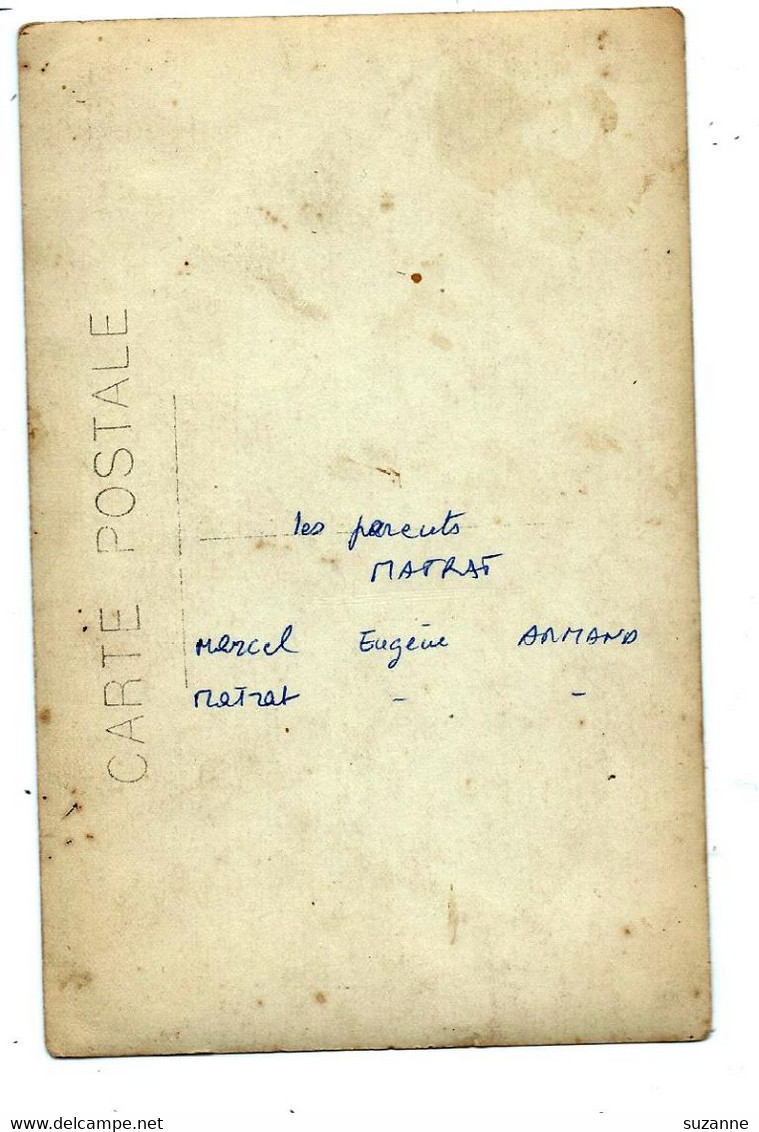 CARTE POSTALE
les parents
MATRAT
Marcel Eugène ARMAND
Matrat - -
delcampe.net
suzanne